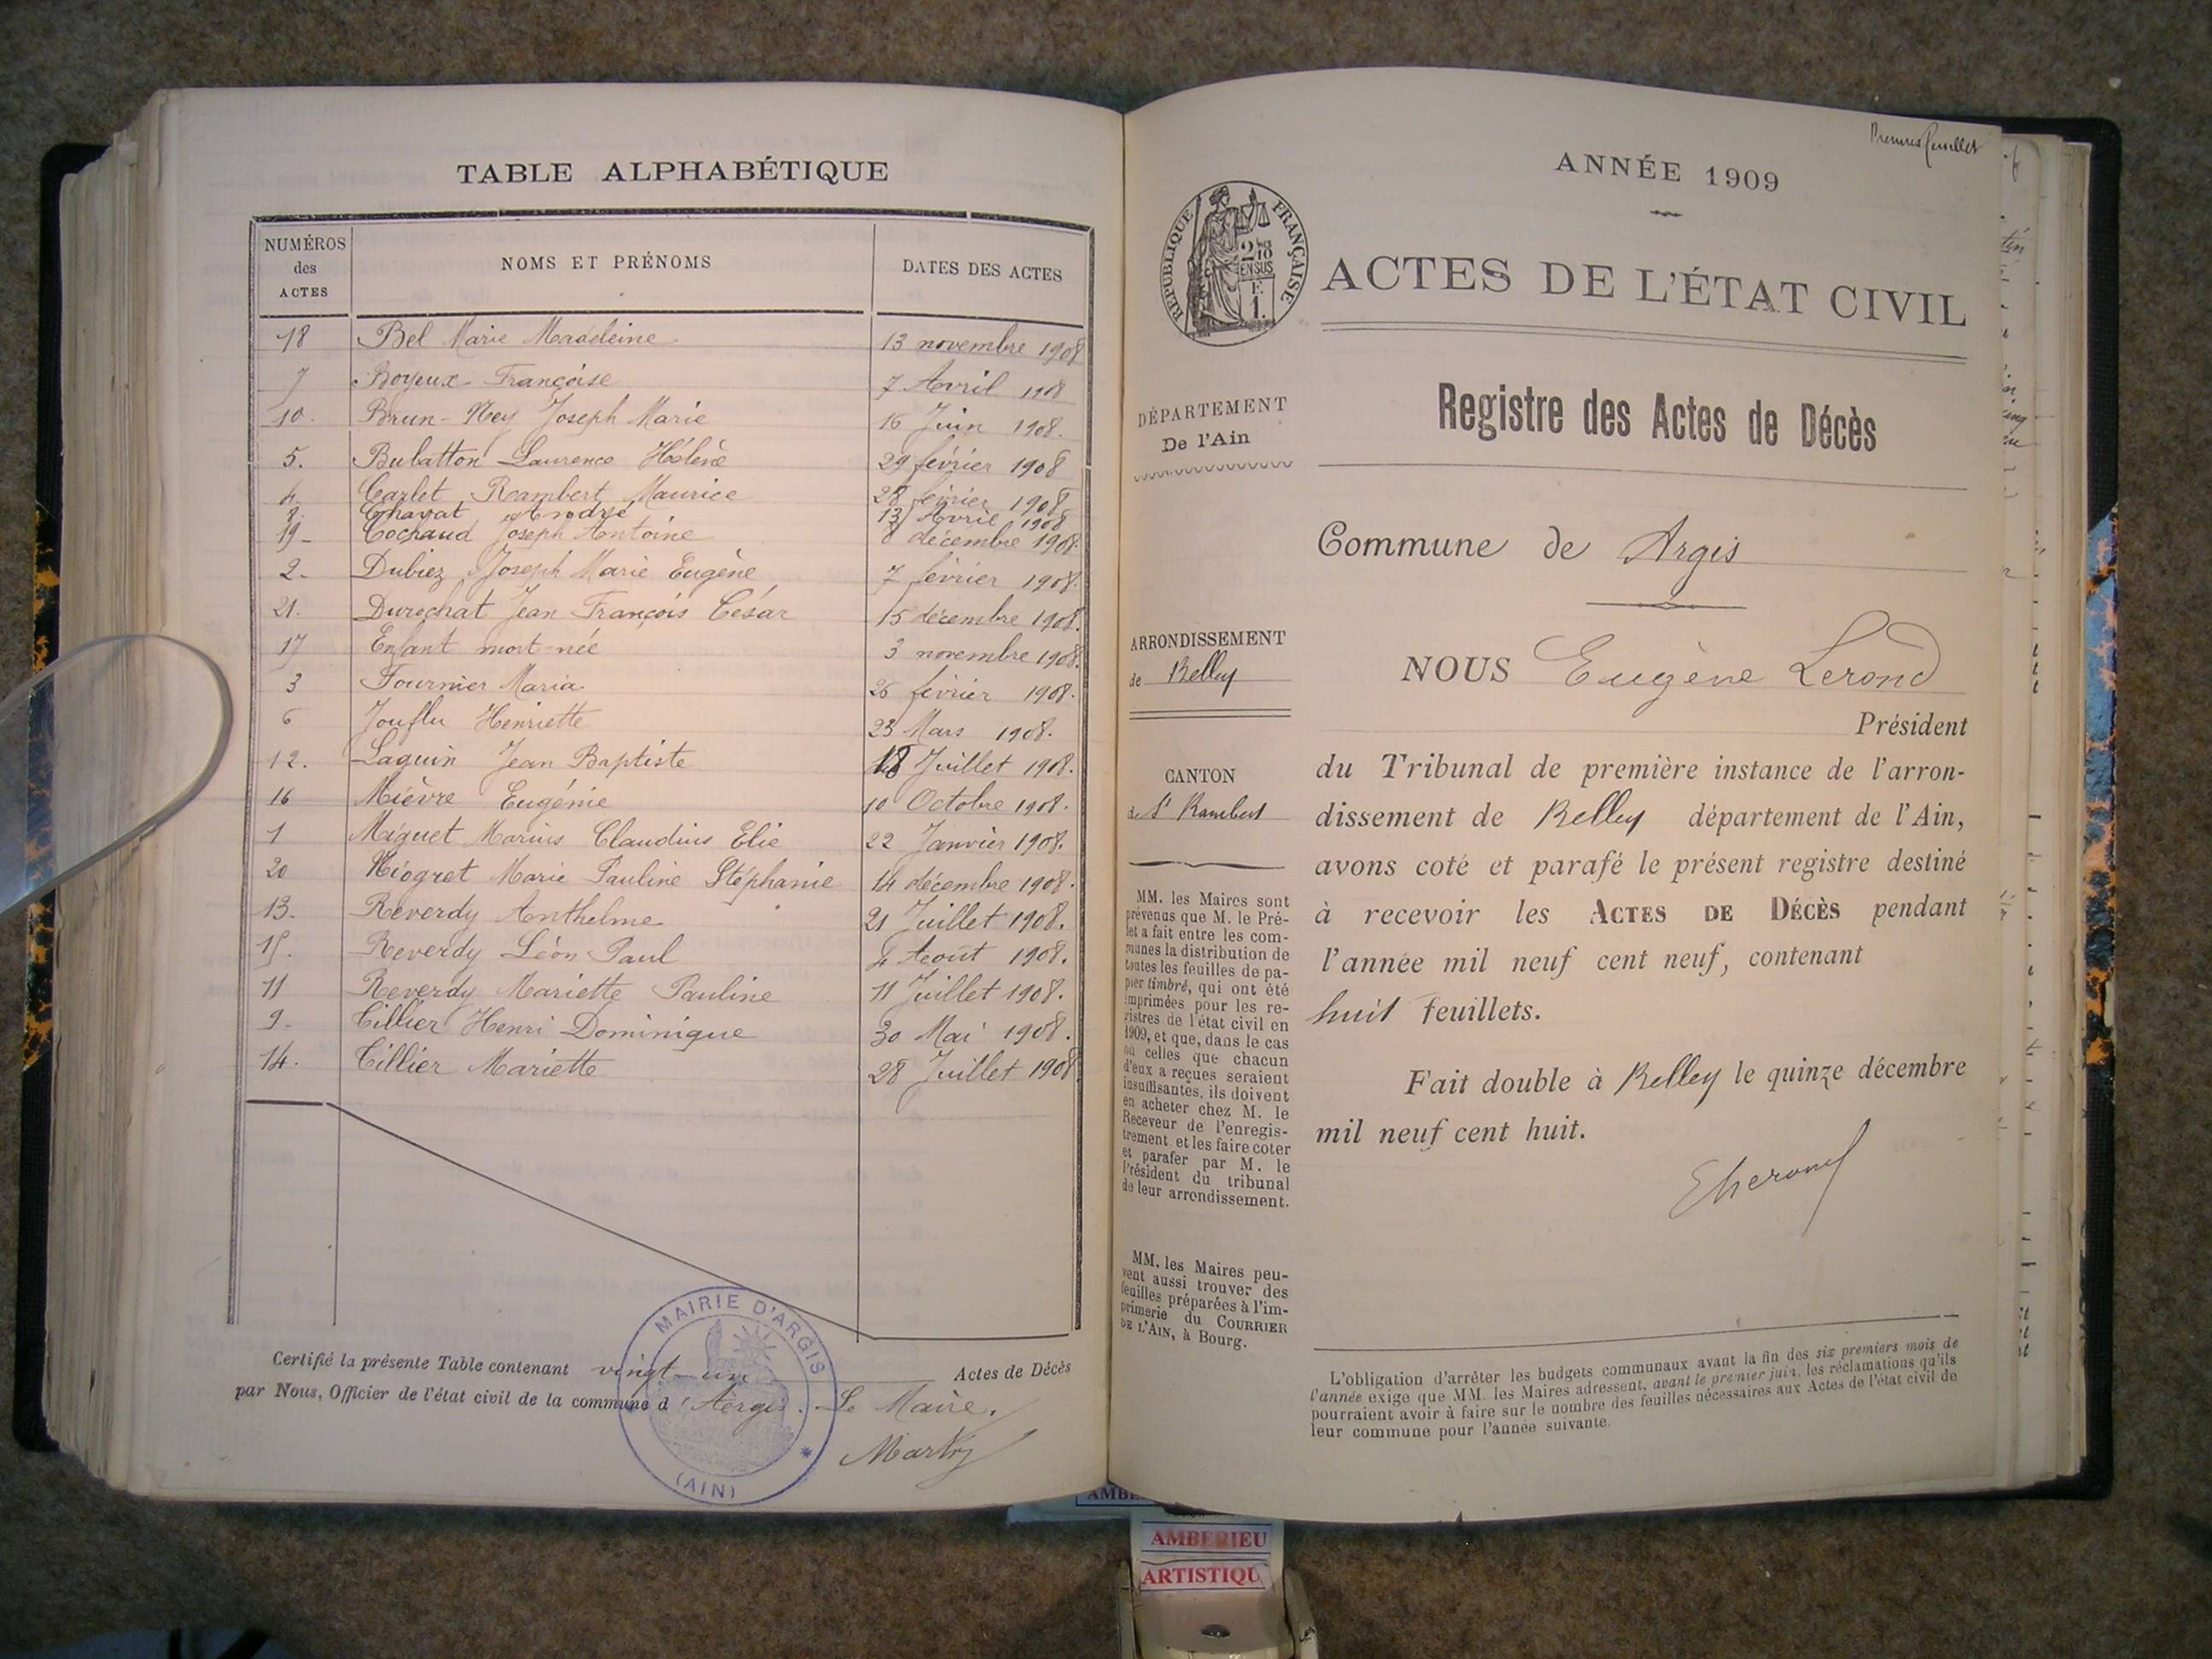 TABLE ALPHABÉTIQUE
NUMÉROS des ACTES NOMS ET PRÉNOMS DATES DES ACTES
18 Bel Marie Madeleine 13 novembre 1908
7 Boyeux Françoise 7 Avril 1908
10. Brun-Ney Joseph Marie 16 Juin 1908.
5. Bubatton Laurence Hélène 29 février 1908
4 Carlet Rambert Maurice 28 février 1908
8. Charat André 13 Avril 1908
19- Cochaud Joseph Antoine 8 décembre 1908.
2. Dubiez Joseph Marie Eugène 7 février 1908.
21. Durochat Jean François César 15 décembre 1908.
17 Enfant mort-née 3 novembre 1908.
3 Fournier Maria 26 février 1908.
6 Jouflu Henriette 23 Mars 1908.
12. Laguin Jean Baptiste 18 Juillet 1908.
16 Mièvre Eugénie 10 Octobre 1908.
1 Miguet Marius Claudius Elie 22 Janvier 1908.
20 Niogret Marie Pauline Stéphanie 14 décembre 1908.
13. Reverdy Anthelme 21 Juillet 1908.
15. Reverdy Léon Paul 4 Août 1908.
11 Reverdy Mariette Pauline 11 Juillet 1908.
9. Cillier Henri Dominique 30 Mai 1908.
14. Cillier Mariette 28 Juillet 1908
Certifié la présente Table contenant vingt-un Actes de Décès
par Nous, Officier de l'état civil de la commune d'Argis. Le Maire.
MAIRIE D'ARGIS
(AIN)
Premier feuillet
ANNÉE 1909
RÉPUBLIQUE FRANÇAISE
ACTES DE L'ÉTAT CIVIL
Registre des Actes de Décès
DÉPARTEMENT
De l'Ain
Commune de Argis
ARRONDISSEMENT
de Belley
CANTON
de St Rambert
MM. les Maires sont
prévenus que M. le Pré-
fet a fait entre les com-
munes la distribution de
toutes les feuilles de pa-
pier timbré, qui ont été
imprimées pour les re-
gistres de l'état civil en
1909, et que, dans le cas
où celles que chacun
d'eux a reçues seraient
insuffisantes, ils doivent
en acheter chez M. le
Receveur de l'enregis-
trement et les faire coter
et parafer par M. le
Président du tribunal
de leur arrondissement.
MM. les Maires peu-
vent aussi trouver des
feuilles préparées à l'im-
primerie du COURRIER
DE L'AIN, à Bourg.
NOUS Eugène Lerond
Président
du Tribunal de première instance de l'arron-
dissement de Belley département de l'Ain,
avons coté et parafé le présent registre destiné
à recevoir les ACTES DE DÉCÈS pendant
l'année mil neuf cent neuf, contenant
huit feuillets.
Fait double à Belley le quinze décembre
mil neuf cent huit.
L'obligation d'arrêter les budgets communaux avant la fin des six premiers mois de
l'année exige que MM. les Maires adressent, avant le premier juin, les réclamations qu'ils
pourraient avoir à faire sur le nombre des feuilles nécessaires aux Actes de l'état civil de
leur commune pour l'année suivante.
AMBERIEU
ARTISTIQU